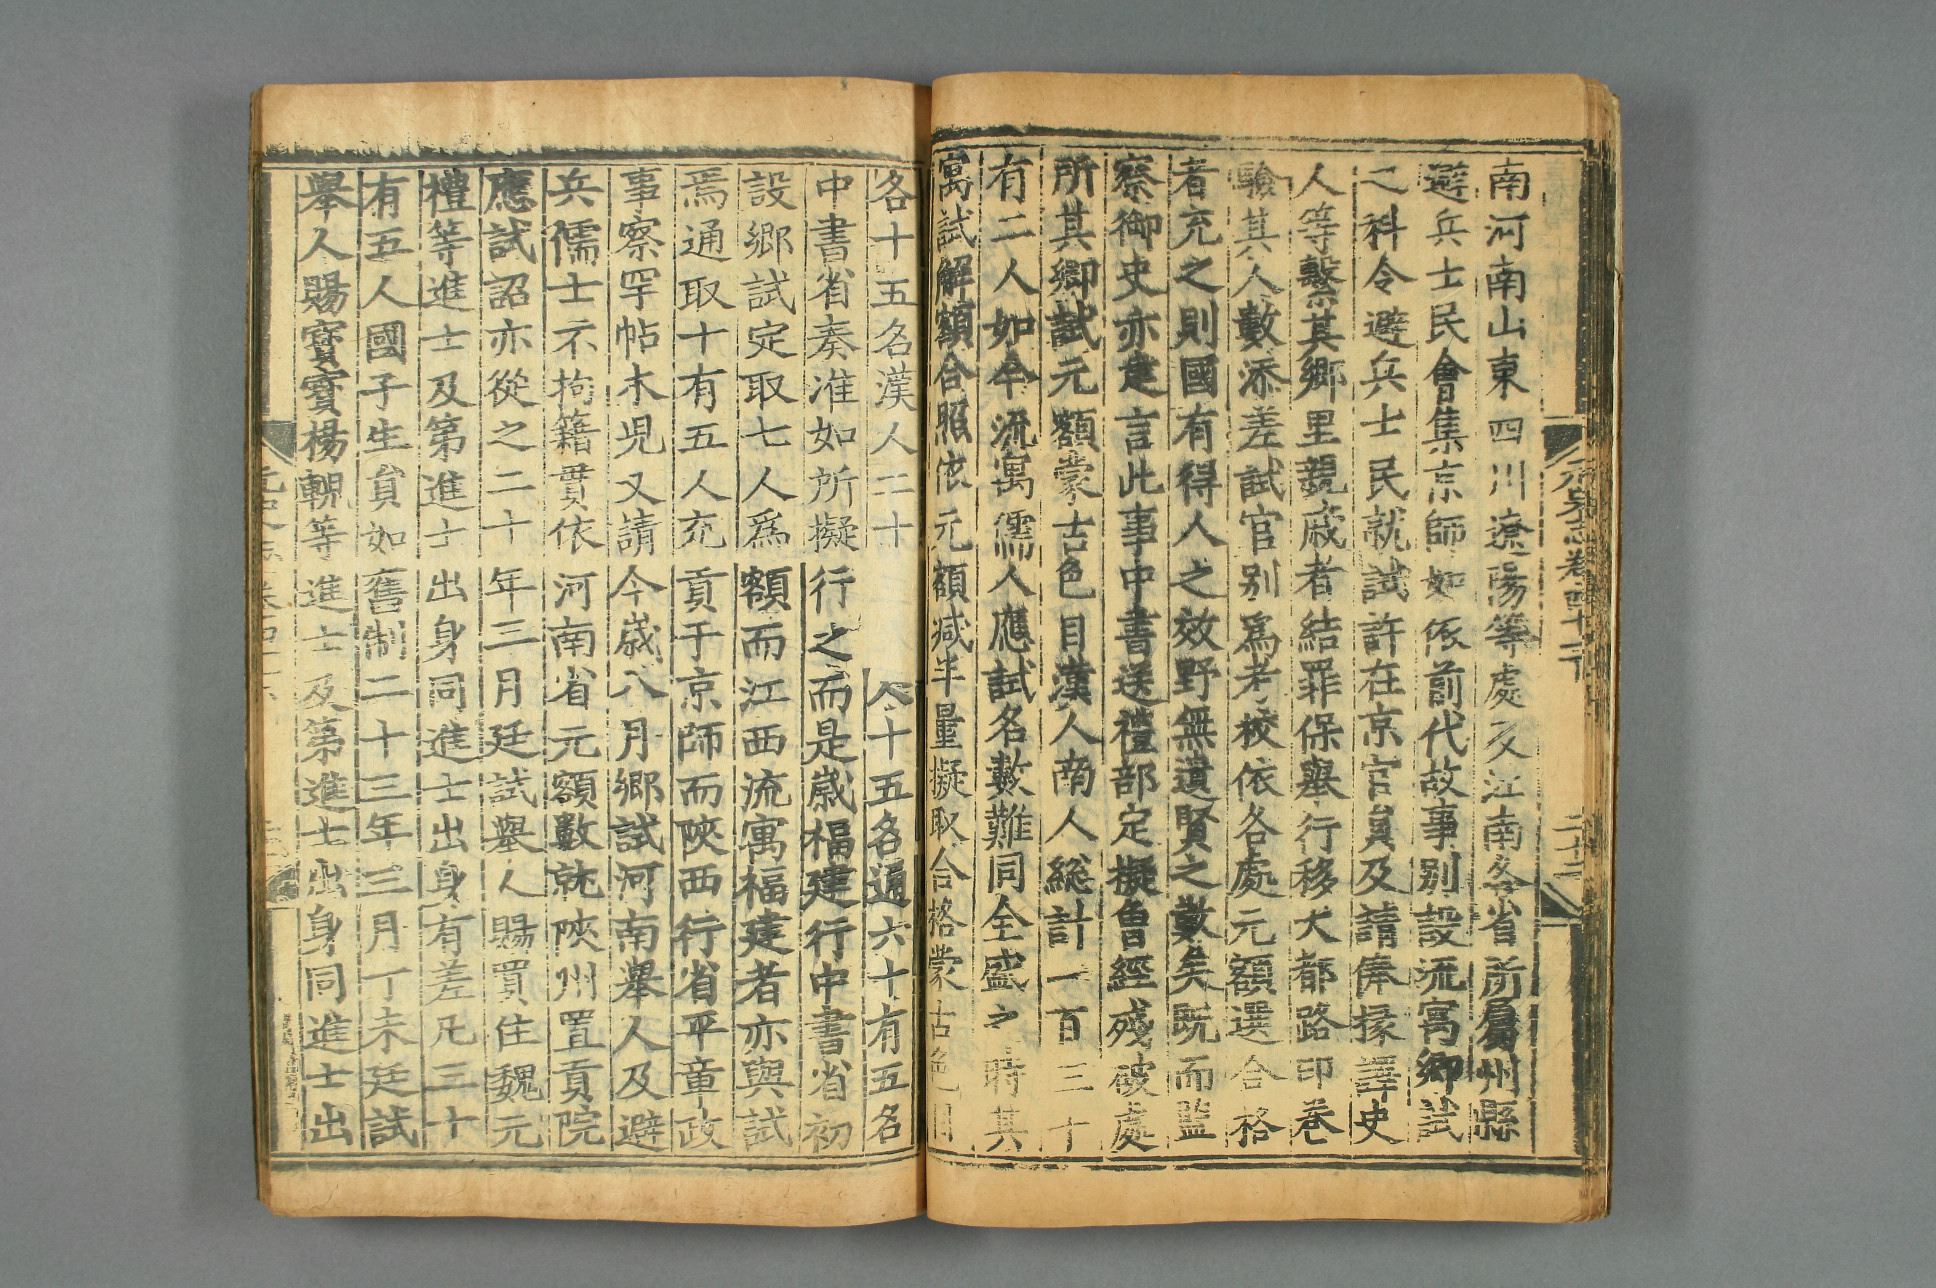 南河南山東四川遼陽等處及江南各省所屬州縣
避兵士民會集京師如依前代故事別設流寓鄉試
之科令避兵士民就試許在京官員及請俸掾譯史
人等繫其鄉里親戚者結罪保舉行移大都路印卷
驗其人數添差試官別爲考校依各處元額選合格
者充之則國有得人之效野無遺賢之歎矣既而監
察御史亦建言此事中書送禮部定擬曾經殘破處
所其鄉試元額蒙古色目漢人南人總計一百三十
有二人如今流寓儒人應試名數難同全盛之時其
寓試解額合照依元額減半量擬取合格蒙古色目
各十五名漢人二十　　　　令十五名通六十有五名
中書省奏准如所擬行之而是歲福建行中書省初
設鄉試定取七人爲額而江西流寓福建者亦與試
焉通取十有五人充貢于京師而陝西行省平章政
事察罕帖木兒又請今歲八月鄉試河南舉人及避
兵儒士不拘籍貫依河南省元額數就陝州置貢院
應試詔亦從之二十年三月廷試舉人賜買住魏元
禮等進士及第進士出身同進士出身有差凡三十
有五人國子生員如舊制二十三年三月丁未廷試
舉人賜寳寳楊輗等進士及第進士出身同進士出
元史志卷四十二下
二十二